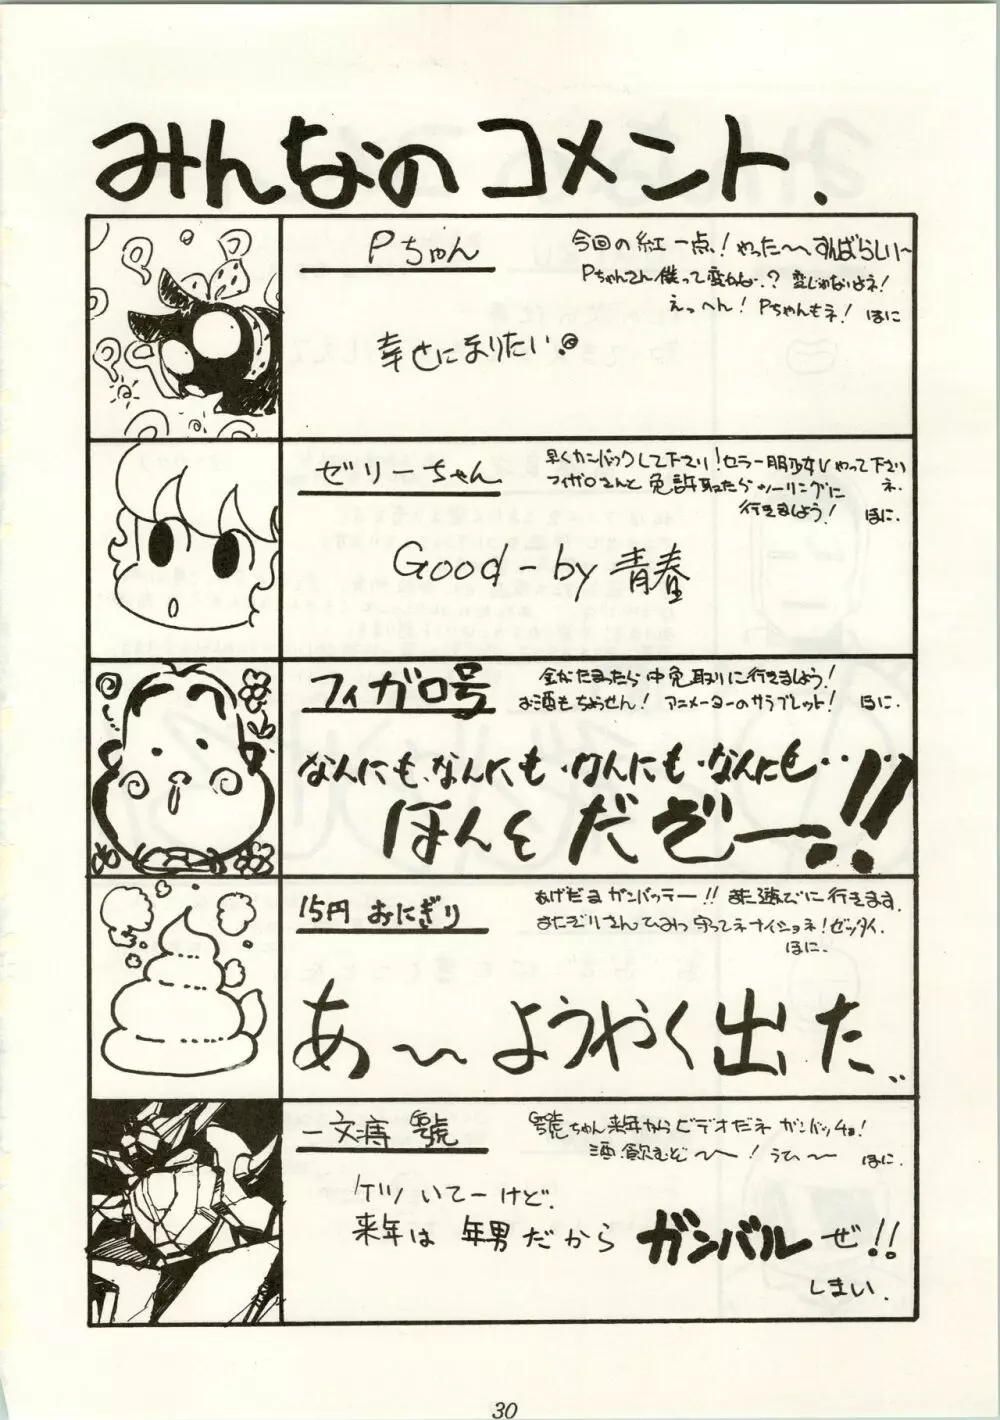 みんなのコメント.
Pちゃん
今回の紅一点!やった〜〜すんばらしい〜
Pちゃんさん僕って変かな?変じゃないよネ!
えっへん!Pちゃんもネ! ほに
幸せになりたい。
ゼリーちゃん
早くカンバックして下さい!セラー服少女Vやって下さいネ.
フィガロさんと免許取ったらツーリングに
行きましょう! ほに.
Good-by 青春
フィガロ号
金がたまったら中免取りに行きましょう!
お酒もちょうせん!アニメーターのサラブレット! ほに.
なんにも、なんにも・なんにも・なんにも・・・・
ほんとだぞー..!!
15円おにぎり
あげだまガンバッテー!!また遊びに行きます.
またぞりさんひみつ守ってネナイショネ!ゼッタイ.
ほに.
あ〜〜ようやく出た..
一文薄 號
號ちゃん来年からビデオだネガンバッチョ!
酒飲むぞ〜〜!うひ〜〜 ほに.
ケツいてーけど.
来年は年男だからガンバルぜ!!
しまい.
30